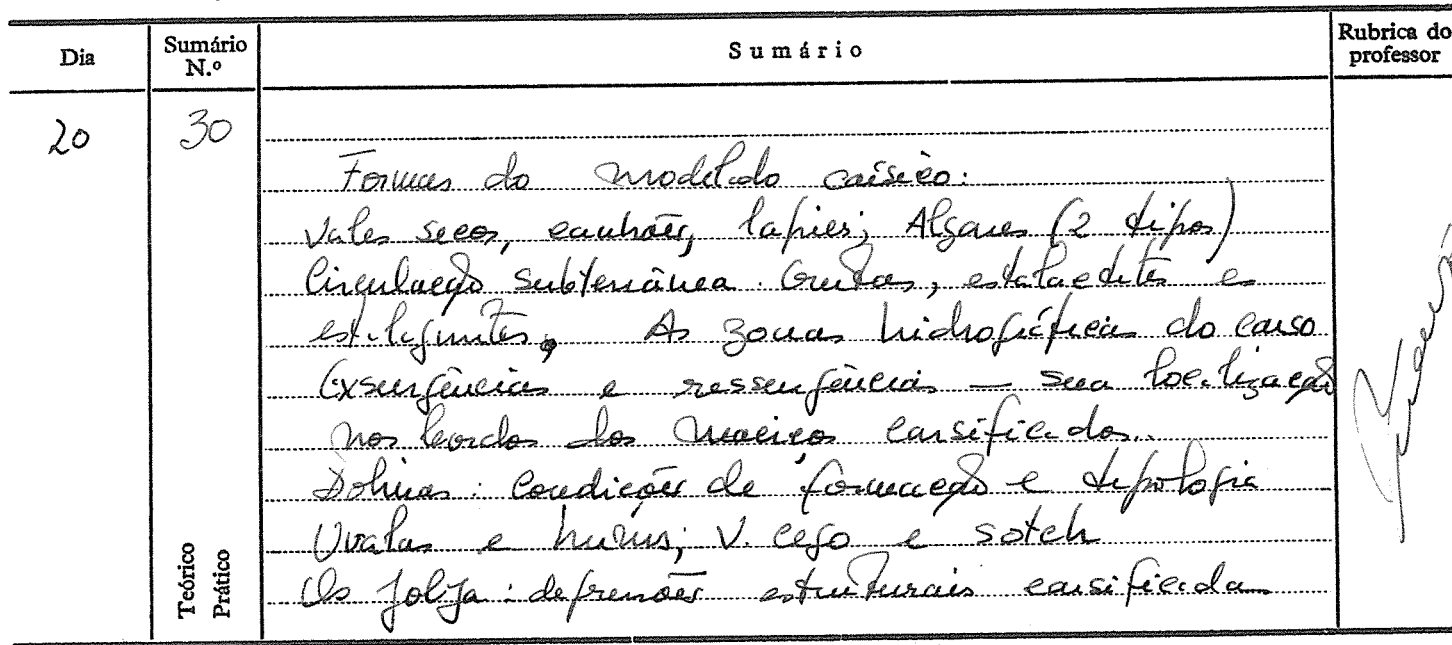 Dia
Sumário N.º
Sumário
Rubrica do professor
20
30
Formas do modelado cársico:
Vales secos, canhões, lapies; Algares (2 tipos)
Circulação subterrânea. Grutas, estalactites e
estalagmites. As zonas hidrográficas do carso
Exsurgências e ressurgências — sua localização
nos bordos dos maciços carsificados.
Dolinas: condições de formação e tipologia
Uvalas e hums; V. cego e sotch
Os polja: depressões estruturais carsificadas
Teórico
Prático